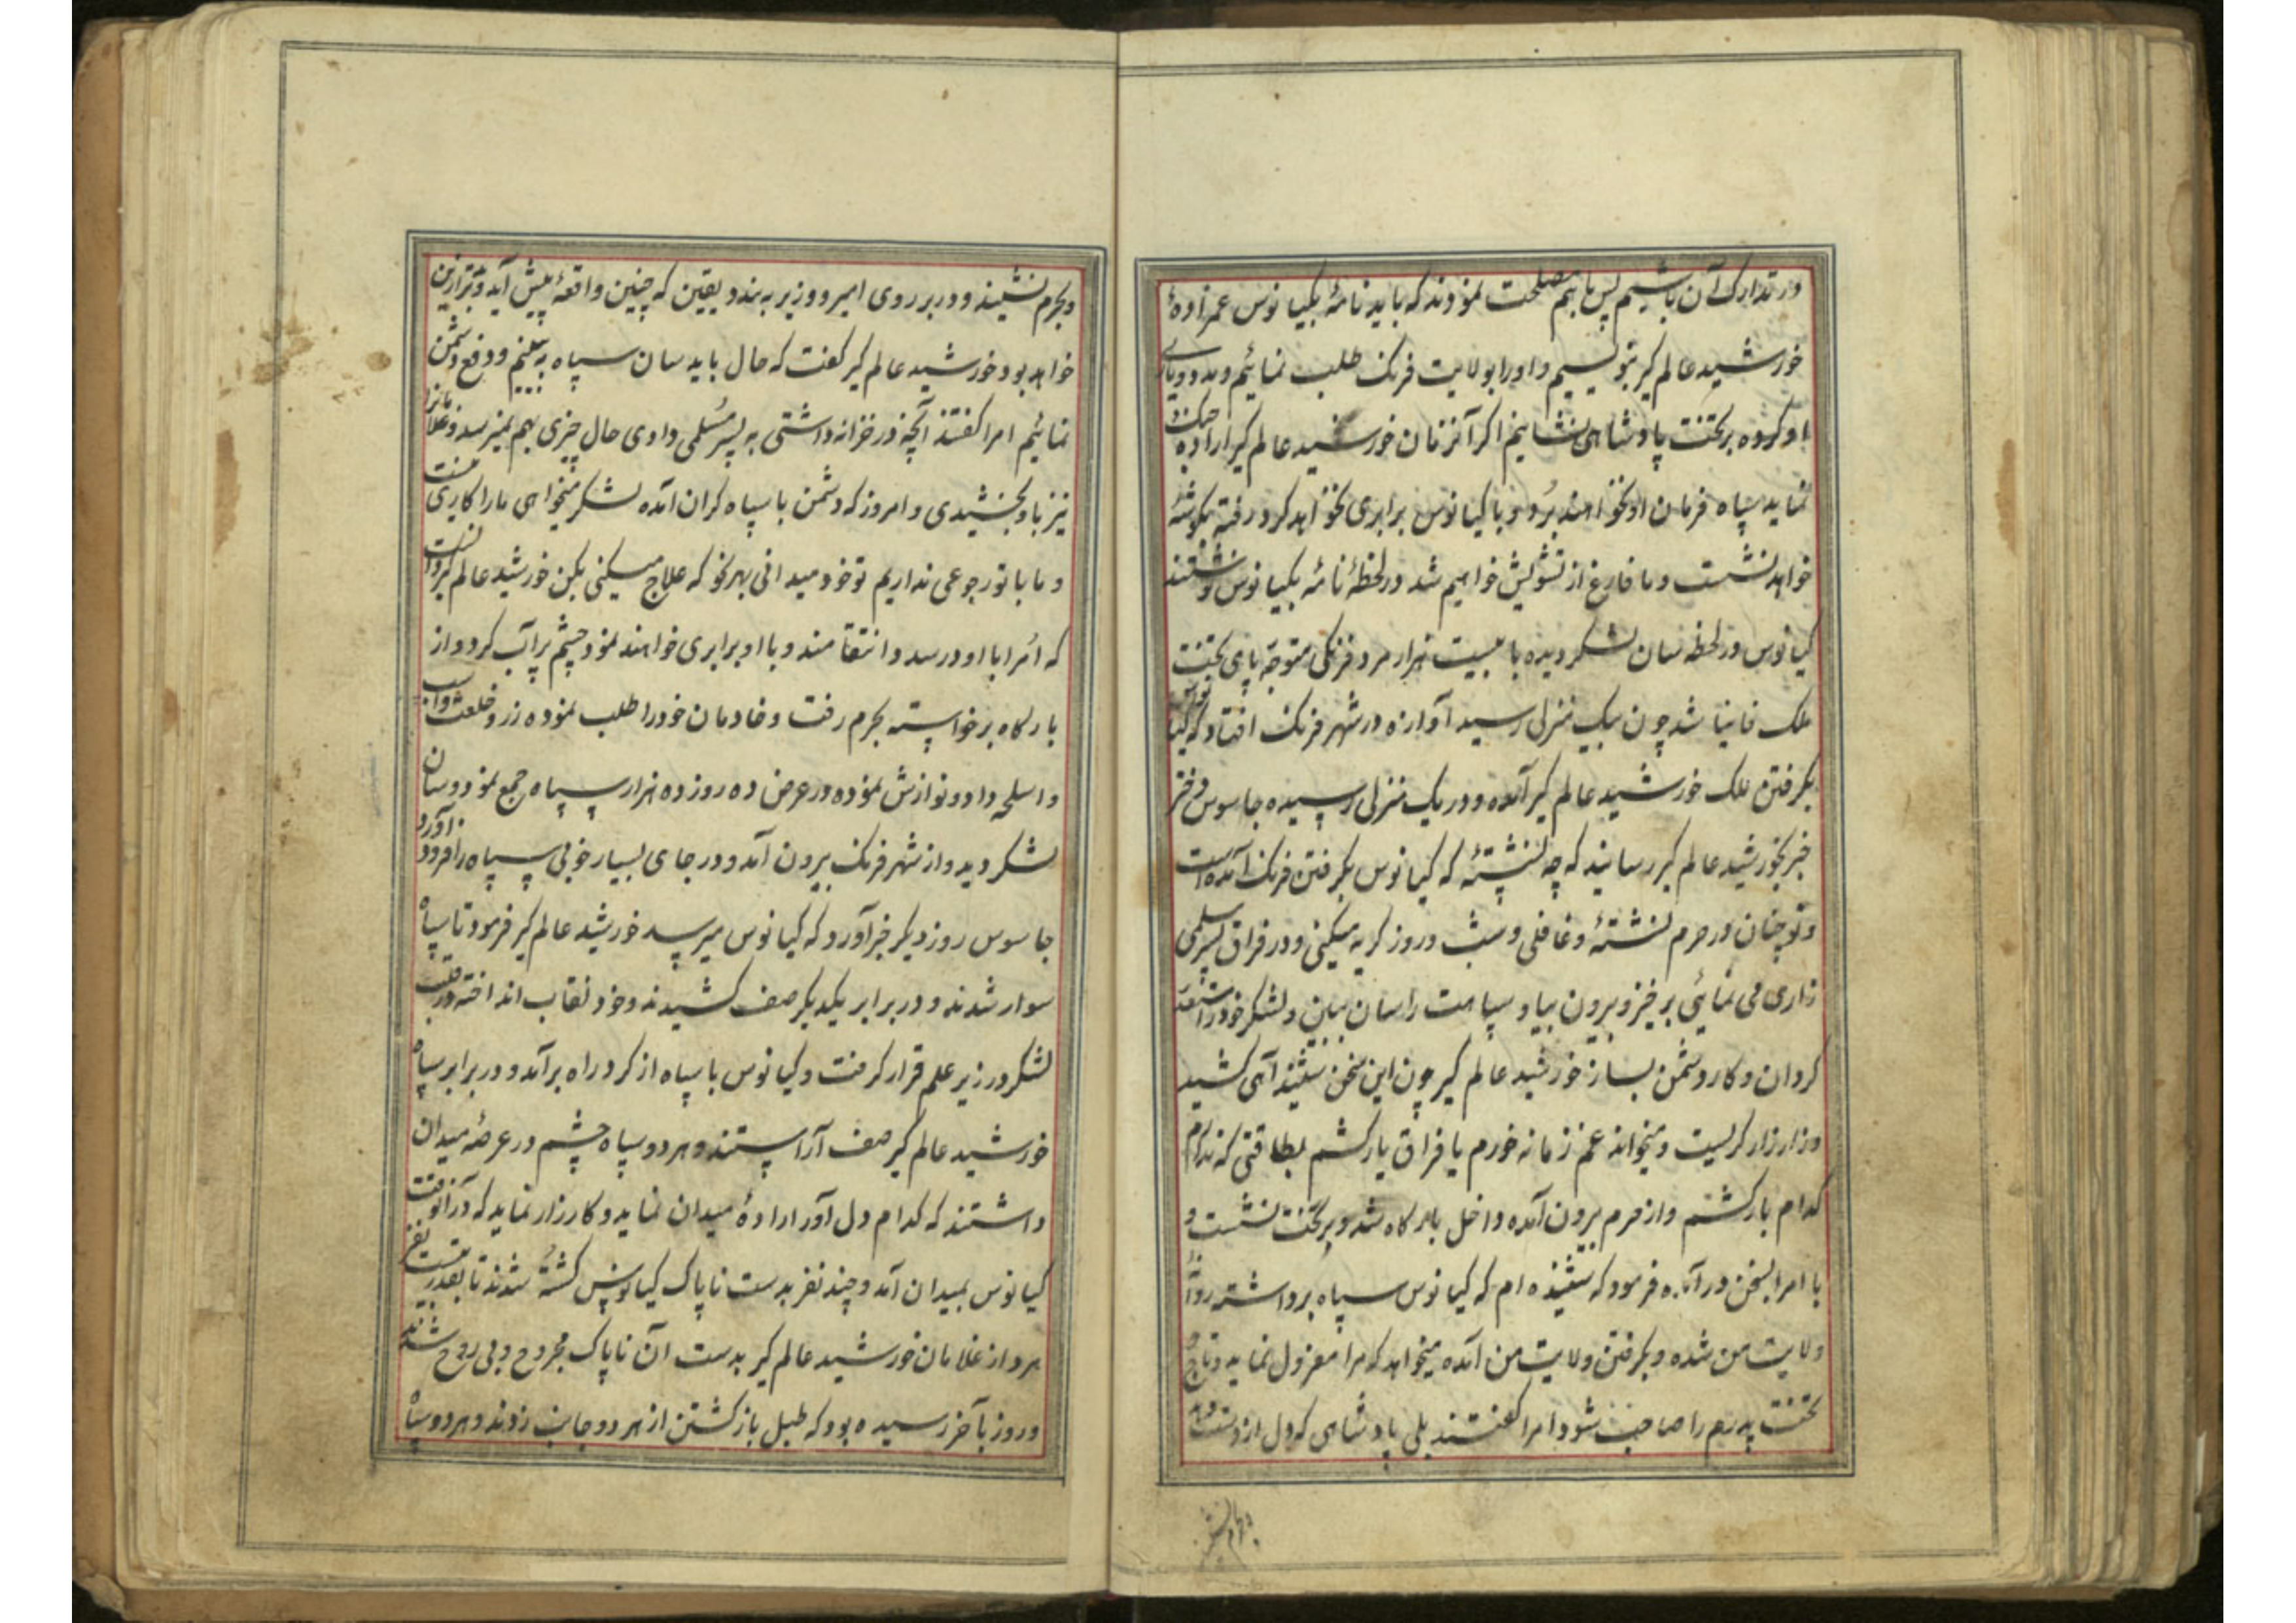 در تدارک آن باشیم پس باهم مصلحت نمودند که باید نامهٔ بکیانوس عمزادهٔ
خورشید عالم کیر بنویسیم و اورا بولایت فرنک طلب نمائیم و مدد و یاری
باو کرده بر تخت پادشاهی بنشانیم اکر آنزمان خورشید عالم کیر ارادهٔ جنک
نماید سپاه فرمان او نخواهند برد و با کیانوس برابری نخواهد کرد رفته بکوشهٔ
خواهد نشست و ما فارغ از تشویش خواهیم شد در لحظهٔ نامهٔ بکیانوس نوشتند
کیانوس در لحظه سان لشکر دیده با بیست هزار مرد فرنکی متوجه پای تخت
ملک فانیا شد چون بیک منزل رسید آوازه در شهر فرنک افتاد که کیانوس
بکرفتن ملک خورشید عالم کیر آمده و در یک منزلی رسیده جاسوس
خبر بخورشید عالم کیر رسانید که چه نشستهٔ که کیانوس بکرفتن فرنک آمده است
و تو چنان در حرم نشستهٔ و غافلی و شب و روز کریه میکنی و در فراق پسر سلمی
زاری می نمائی برخیز و بیرون بیا و سپاهت را سان ببین و لشکر خود را مستعد
کردان و کار دشمن بساز خورشید عالم کیر چون این سخن شنید آهی کشید
و زار زار کریست و میخواند غم زمانه خورم یا فراق یار کشم بطاقتی که ندارم
کدام بار کشم و از حرم بیرون آمده داخل بارکاه شد و بر تخت نشست و
با امرا بسخن در آمده فرمود که شنیده ام که کیانوس سپاه برداشته روانهٔ
ولایت من شده و بکرفتن ولایت من آمده میخواهد که مرا معزول نماید و تاج و
تخت پدرم را صاحب شود امرا کفتند بلی پادشاهی که دل از دست دهد
و بحرم نشیند
و بحرم نشیند و در بر روی امیر و وزیر به بندد یقین که چنین واقعهٔ پیش آید و بدتر از این
خواهد بود خورشید عالم کیر کفت که حال باید سان سپاه به بینیم و دفع دشمن
نمائیم امرا کفتند آنچه در خزانه داشتی به پسر سلمی دادی حال چیزی بهم نمیرسد و غلامانرا
نیز باو بخشیدی و امروز که دشمن با سپاه کران آمده لشکر میخواهی ما را کاری نیست
و ما با تو رجوعی نداریم تو خود میدانی بهر نحو که علاج میکنی بکن خورشید عالم کیر دانست
که امرا با او در سدد انتقامند و با او برابری خواهند نمود چشم پر آب کرد و از
بارکاه برخواسته بحرم رفت و خادمان خودرا طلب نموده زر و خلعت و اسب
و اسلحه داد و نوازش نموده در عرض ده روز ده هزار سپاه جمع نمود و سان
لشکر دید و از شهر فرنک بیرون آمد و در جای بسیار خوبی سپاه را فرود آورد
جاسوس روز دیکر خبر آورد که کیانوس میرسد خورشید عالم کیر فرمود تا سپاه
سوار شدند و در برابر یکدیکر صف کشیدند و خود نقاب انداخته در قلب
لشکر در زیر علم قرار کرفت و کیانوس با سپاه از کرد راه برآمد و در برابر سپاه
خورشید عالم کیر صف آراستند و هر دو سپاه چشم در عرصهٔ میدان
داشتند که کدام دل آور ارادهٔ میدان نماید و کارزار نماید که در آنوقت
کیانوس بمیدان آمد و چند نفر بدست ناپاک کیانوس کشته شدند تا بقدر بیست نفر
مرد از غلامان خورشید عالم کیر بدست آن ناپاک مجروح و بی روح شدند
و روز بآخر رسیده بود که طبل بازکشتن از هر دو جانب زدند و هر دو سپاه